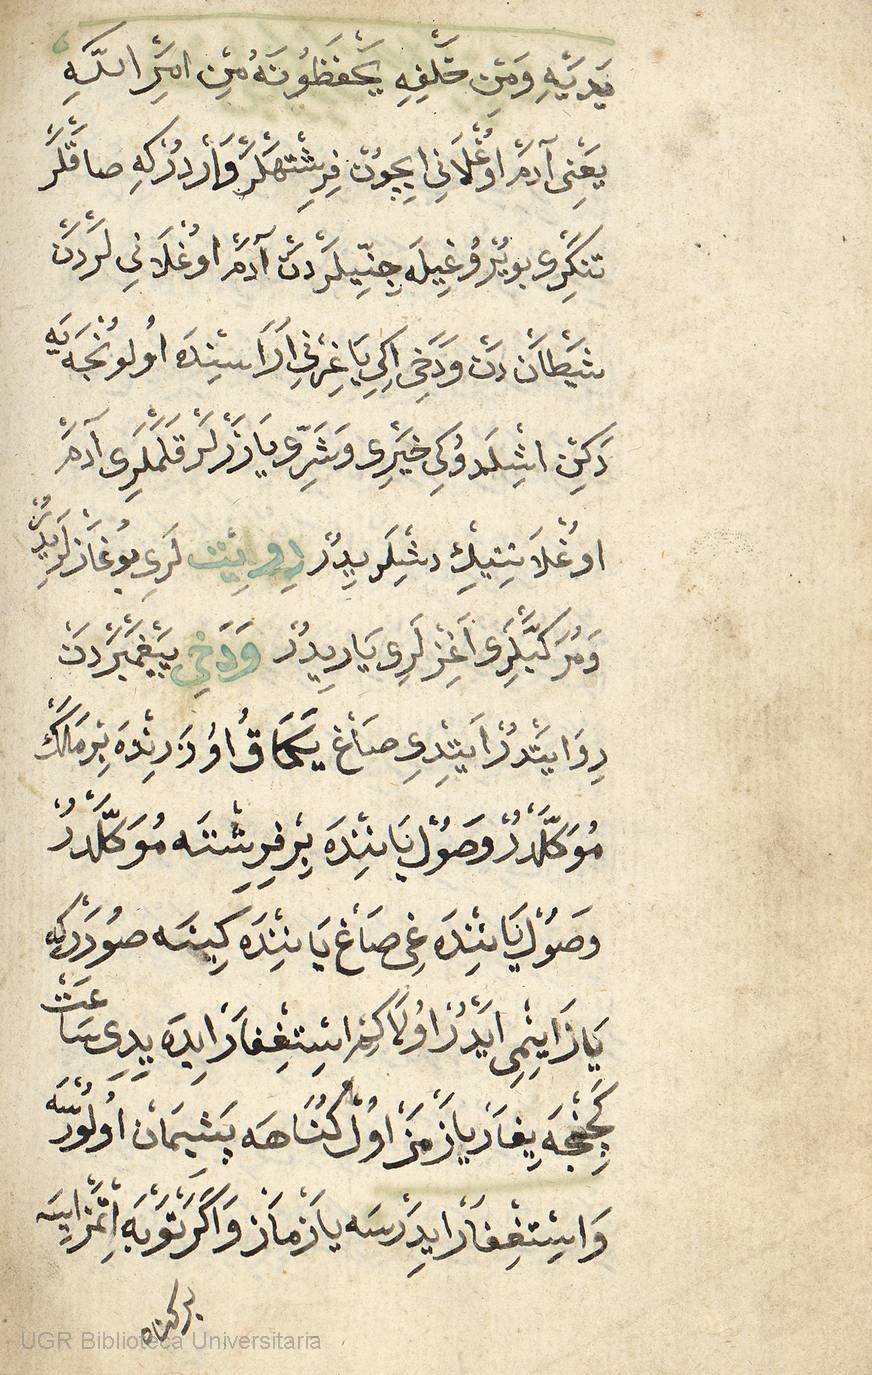 يَدَيْهِ وَمِنْ خَلْفِهِ يَحْفَظُونَهُ مِنْ اَمْرِ اللّٰهِ
يَعْنِى آدَمْ اوُغْلَانِى ايچوُنْ فِرِشْتَهلَرْ وَارْدُرْ كِه صاقْلَرْ
تنكْرِى بويْرُوغِيلَه جِنّيلَرْدَنْ آدَمْ اوُغْلَانى لَرْدَنْ
شَيْطَانْ دَنْ وَدَخِى اِكِى يَاغِرْنِى اَرَاسِنْدَه اوُلونْجَه يَه
دَكِنْ اشِلَدوُكِى خَيْرِى وَشَرِّى يَازَرْلَرْ قَلَمْلَرِى آدَمْ
اوُغْلَانِنِيكْ دشْلَرِيدُرْ دِويتْ لَرِى بوُغَازلَرِيدُرْ
وَمُرَكَّبْلَرِى اَغِزْ لَرِى يَارِيدُرْ وَدَخِى پَيْغَمْبَرْدَنْ
رِوَايَتْدُرْ اَيتدِى صَاغْ يَكَاقْ اوُزَرِنْدَه بِرْ مَلَكْ
مُوَكَّلْدُرْ وصَوُلْ يَانِنْدَه بِرْ فِرِشْتَه مُوَكَّلْدُرْ
وصَوُلْ يَانِنْدَه غِى صَاغْ يَانِنْدَه كِينَه صوُرَرْكِه
يَازَايِنْمِى ايَدُرْ اوُلَاكِمْ اسْتِغْفَارْ ايدَه يِدِى سَاعَتْ
كَچِنْجَه يِغَارْ يازْمَزْ اوُلْ كُنَاهَه پَشِيمَانْ اوُلوُرْسَه
وَاسْتِغْفَارْ ايدَرْسَه يازْمَازْ وَاكَرْ تَوْبَه اِتْمَزْايسَه
بر كناه
UGR Biblioteca Universitaria